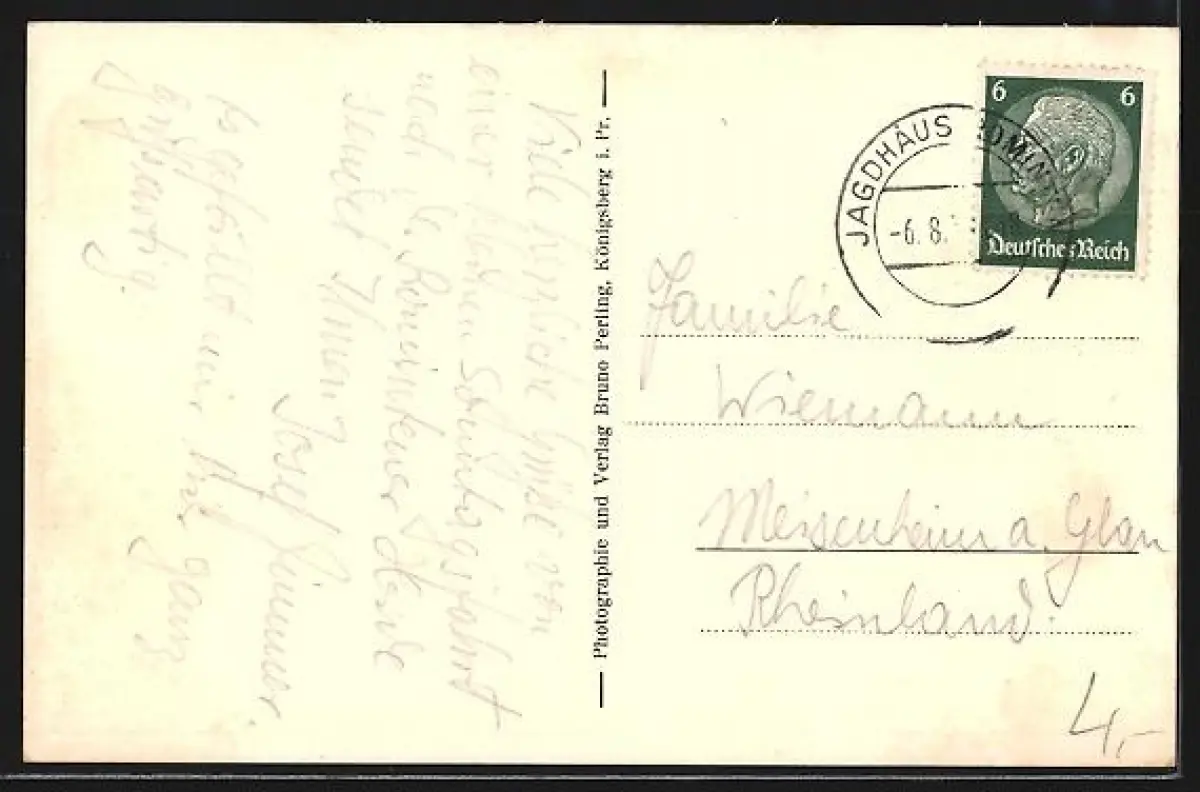 Viele herzliche Grüße von
einer schönen Sonntagsfahrt
nach der Romintener Heide
sendet Ihnen
Josef Zimmer.
Es gefällt mir hier ganz
großartig.
Photographie und Verlag Bruno Perling, Königsberg i. Pr.
6 6
Deutsches Reich
JAGDHAUS ROMINTEN
-6. 8.
Familie
Wiemann
Meisenheim a. Glan
Rheinland.
4,-